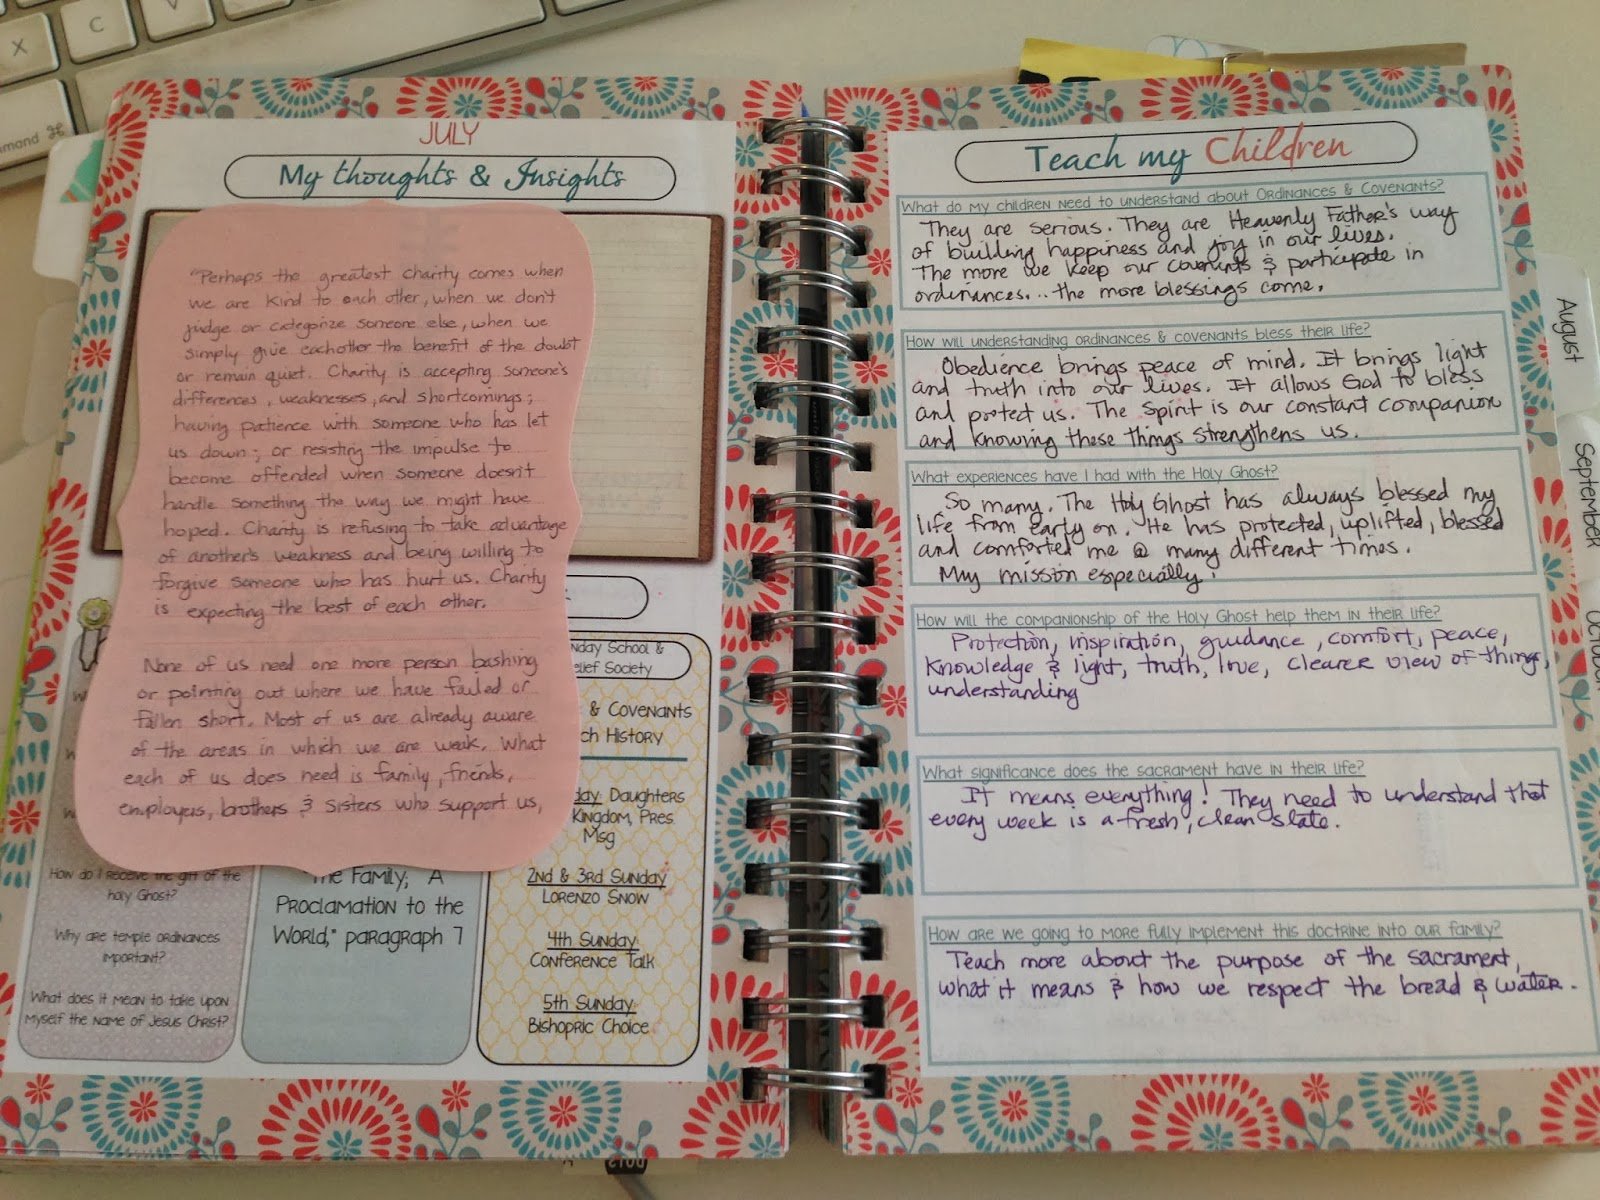 X
C
V
mmand ⌘
JULY
My thoughts & Insights
"Perhaps the greatest charity comes when
we are kind to each other, when we don't
judge or categorize someone else, when we
simply give eachother the benefit of the doubt
or remain quiet. Charity is accepting someone's
differences, weaknesses, and shortcomings;
having patience with someone who has let
us down; or resisting the impulse to
become offended when someone doesn't
handle something the way we might have
hoped. Charity is refusing to take advantage
of another's weakness and being willing to
forgive someone who has hurt us. Charity
is expecting the best of each other.
None of us need one more person bashing
or pointing out where we have failed or
fallen short. Most of us are already aware
of the areas in which we are weak. What
each of us does need is family, friends,
employers, brothers & sisters who support us,
How do I receive the gift of the
holy Ghost?
Why are temple ordinances
important?
What does it mean to take upon
myself the name of Jesus Christ?
"The Family; A
Proclamation to the
World," paragraph 7
nday School &
elief Society
& Covenants
ch History
day: Daughters
Kingdom, Pres
Msg
2nd & 3rd Sunday
Lorenzo Snow
4th Sunday:
Conference Talk
5th Sunday:
Bishopric Choice
Teach my Children
What do my children need to understand about Ordinances & Covenants?
They are serious. They are Heavenly Father's way
of building happiness and joy in our lives.
The more we keep our covenants & participate in
ordinances... the more blessings come.
How will understanding ordinances & covenants bless their life?
Obedience brings peace of mind. It brings light
and truth into our lives. It allows God to bless
and protect us. The Spirit is our constant companion
and knowing these things strengthens us.
What experiences have I had with the Holy Ghost?
So many. The Holy Ghost has always blessed my
life from early on. He has protected, uplifted, blessed
and comforted me @ many different times.
My mission especially!
How will the companionship of the Holy Ghost help them in their life?
Protection, inspiration, guidance, comfort, peace,
Knowledge & light, truth, love, clearer view of things,
understanding
What significance does the sacrament have in their life?
It means everything! They need to understand that
every week is a fresh, clean slate.
How are we going to more fully implement this doctrine into our family?
Teach more about the purpose of the sacrament,
what it means & how we respect the bread & water.
August
September
October